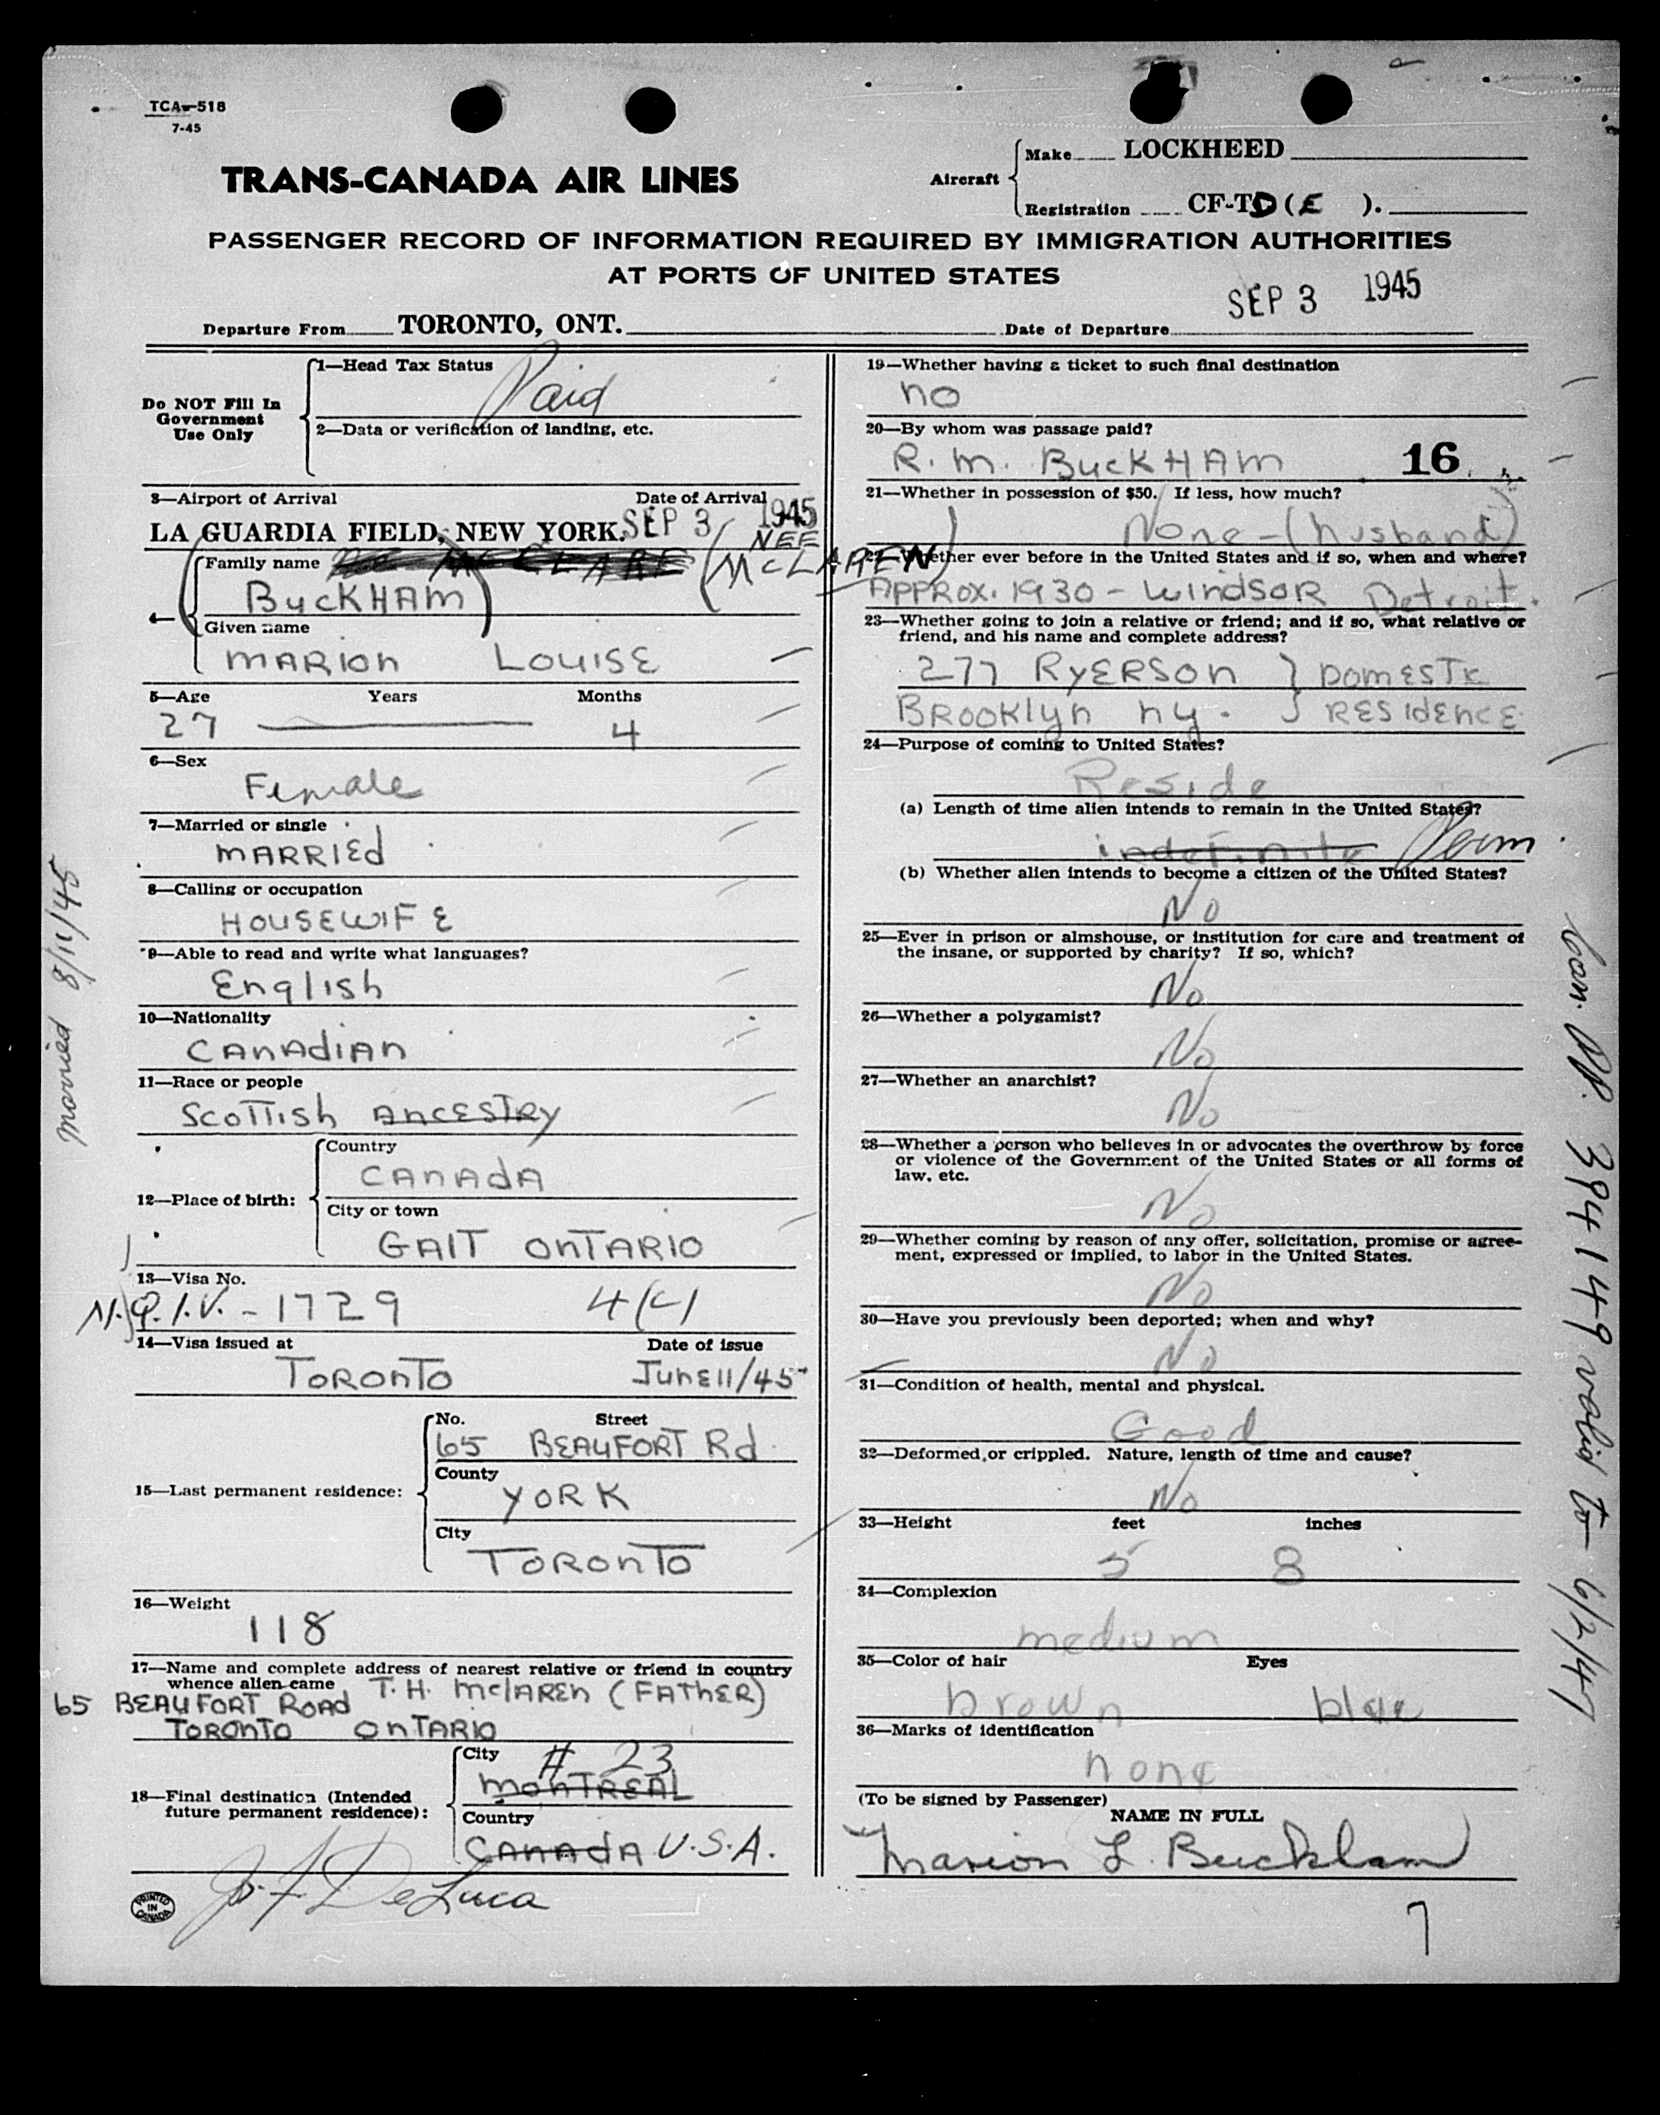 TCA-518
7-45
TRANS-CANADA AIR LINES
Aircraft
Make LOCKHEED
Registration CF-TD (E ).
PASSENGER RECORD OF INFORMATION REQUIRED BY IMMIGRATION AUTHORITIES
AT PORTS OF UNITED STATES
Departure From TORONTO, ONT. Date of Departure SEP 3 1945
Do NOT Fill In
Government
Use Only
1—Head Tax Status
Paid
2—Data or verification of landing, etc.
3—Airport of Arrival Date of Arrival
LA GUARDIA FIELD, NEW YORK. SEP 3 1945
4—
Family name (NEE McLAREN)
BUCKHAM
Given name
MARION LOUISE
5—Age Years Months
27 4
6—Sex
Female
7—Married or single
MARRIEd
8—Calling or occupation
HOUSEWIFE
9—Able to read and write what languages?
English
10—Nationality
CANAdIAN
11—Race or people
SCOTTish ANCESTRY
12—Place of birth:
Country
CANAdA
City or town
GAlT ONTARIO
13—Visa No.
N.Q.I.V. - 1729 4(c)
14—Visa issued at Date of issue
TORONTO JUNE 11/45
15—Last permanent residence:
No. Street
65 BEAUFORT Rd.
County
YORK
City
TORONTO
16—Weight
118
17—Name and complete address of nearest relative or friend in country
whence alien came T. H. McLAREN (FATHER)
65 BEAUFORT ROAD
TORONTO ONTARIO
18—Final destination (Intended
future permanent residence):
City # 23
MONTREAL
Country
CANAdA U.S.A.
PRINTED
IN
CANADA
DeLuca
married 8/11/45
19—Whether having a ticket to such final destination
no
20—By whom was passage paid?
R. M. BUCKHAM 16
21—Whether in possession of $50. If less, how much?
None - (husband)
22—Whether ever before in the United States and if so, when and where?
APPROX. 1930 - WINDSOR Detroit.
23—Whether going to join a relative or friend; and if so, what relative or
friend, and his name and complete address?
277 RYERSON } DOMESTIC
BROOKLYN NY. } RESIDENCE
24—Purpose of coming to United States?
Reside
(a) Length of time alien intends to remain in the United States?
indefinite Perm.
(b) Whether alien intends to become a citizen of the United States?
No
25—Ever in prison or almshouse, or institution for care and treatment of
the insane, or supported by charity? If so, which?
No
26—Whether a polygamist?
No
27—Whether an anarchist?
No
28—Whether a person who believes in or advocates the overthrow by force
or violence of the Government of the United States or all forms of
law, etc.
No
29—Whether coming by reason of any offer, solicitation, promise or agree-
ment, expressed or implied, to labor in the United States.
No
30—Have you previously been deported; when and why?
No
31—Condition of health, mental and physical.
Good
32—Deformed or crippled. Nature, length of time and cause?
No
33—Height feet inches
5 8
34—Complexion
medium
35—Color of hair Eyes
brown blue
36—Marks of identification
none
(To be signed by Passenger)
NAME IN FULL
Marion L. Buckham
7
Can. PP. 394149 valid to 6/2/47